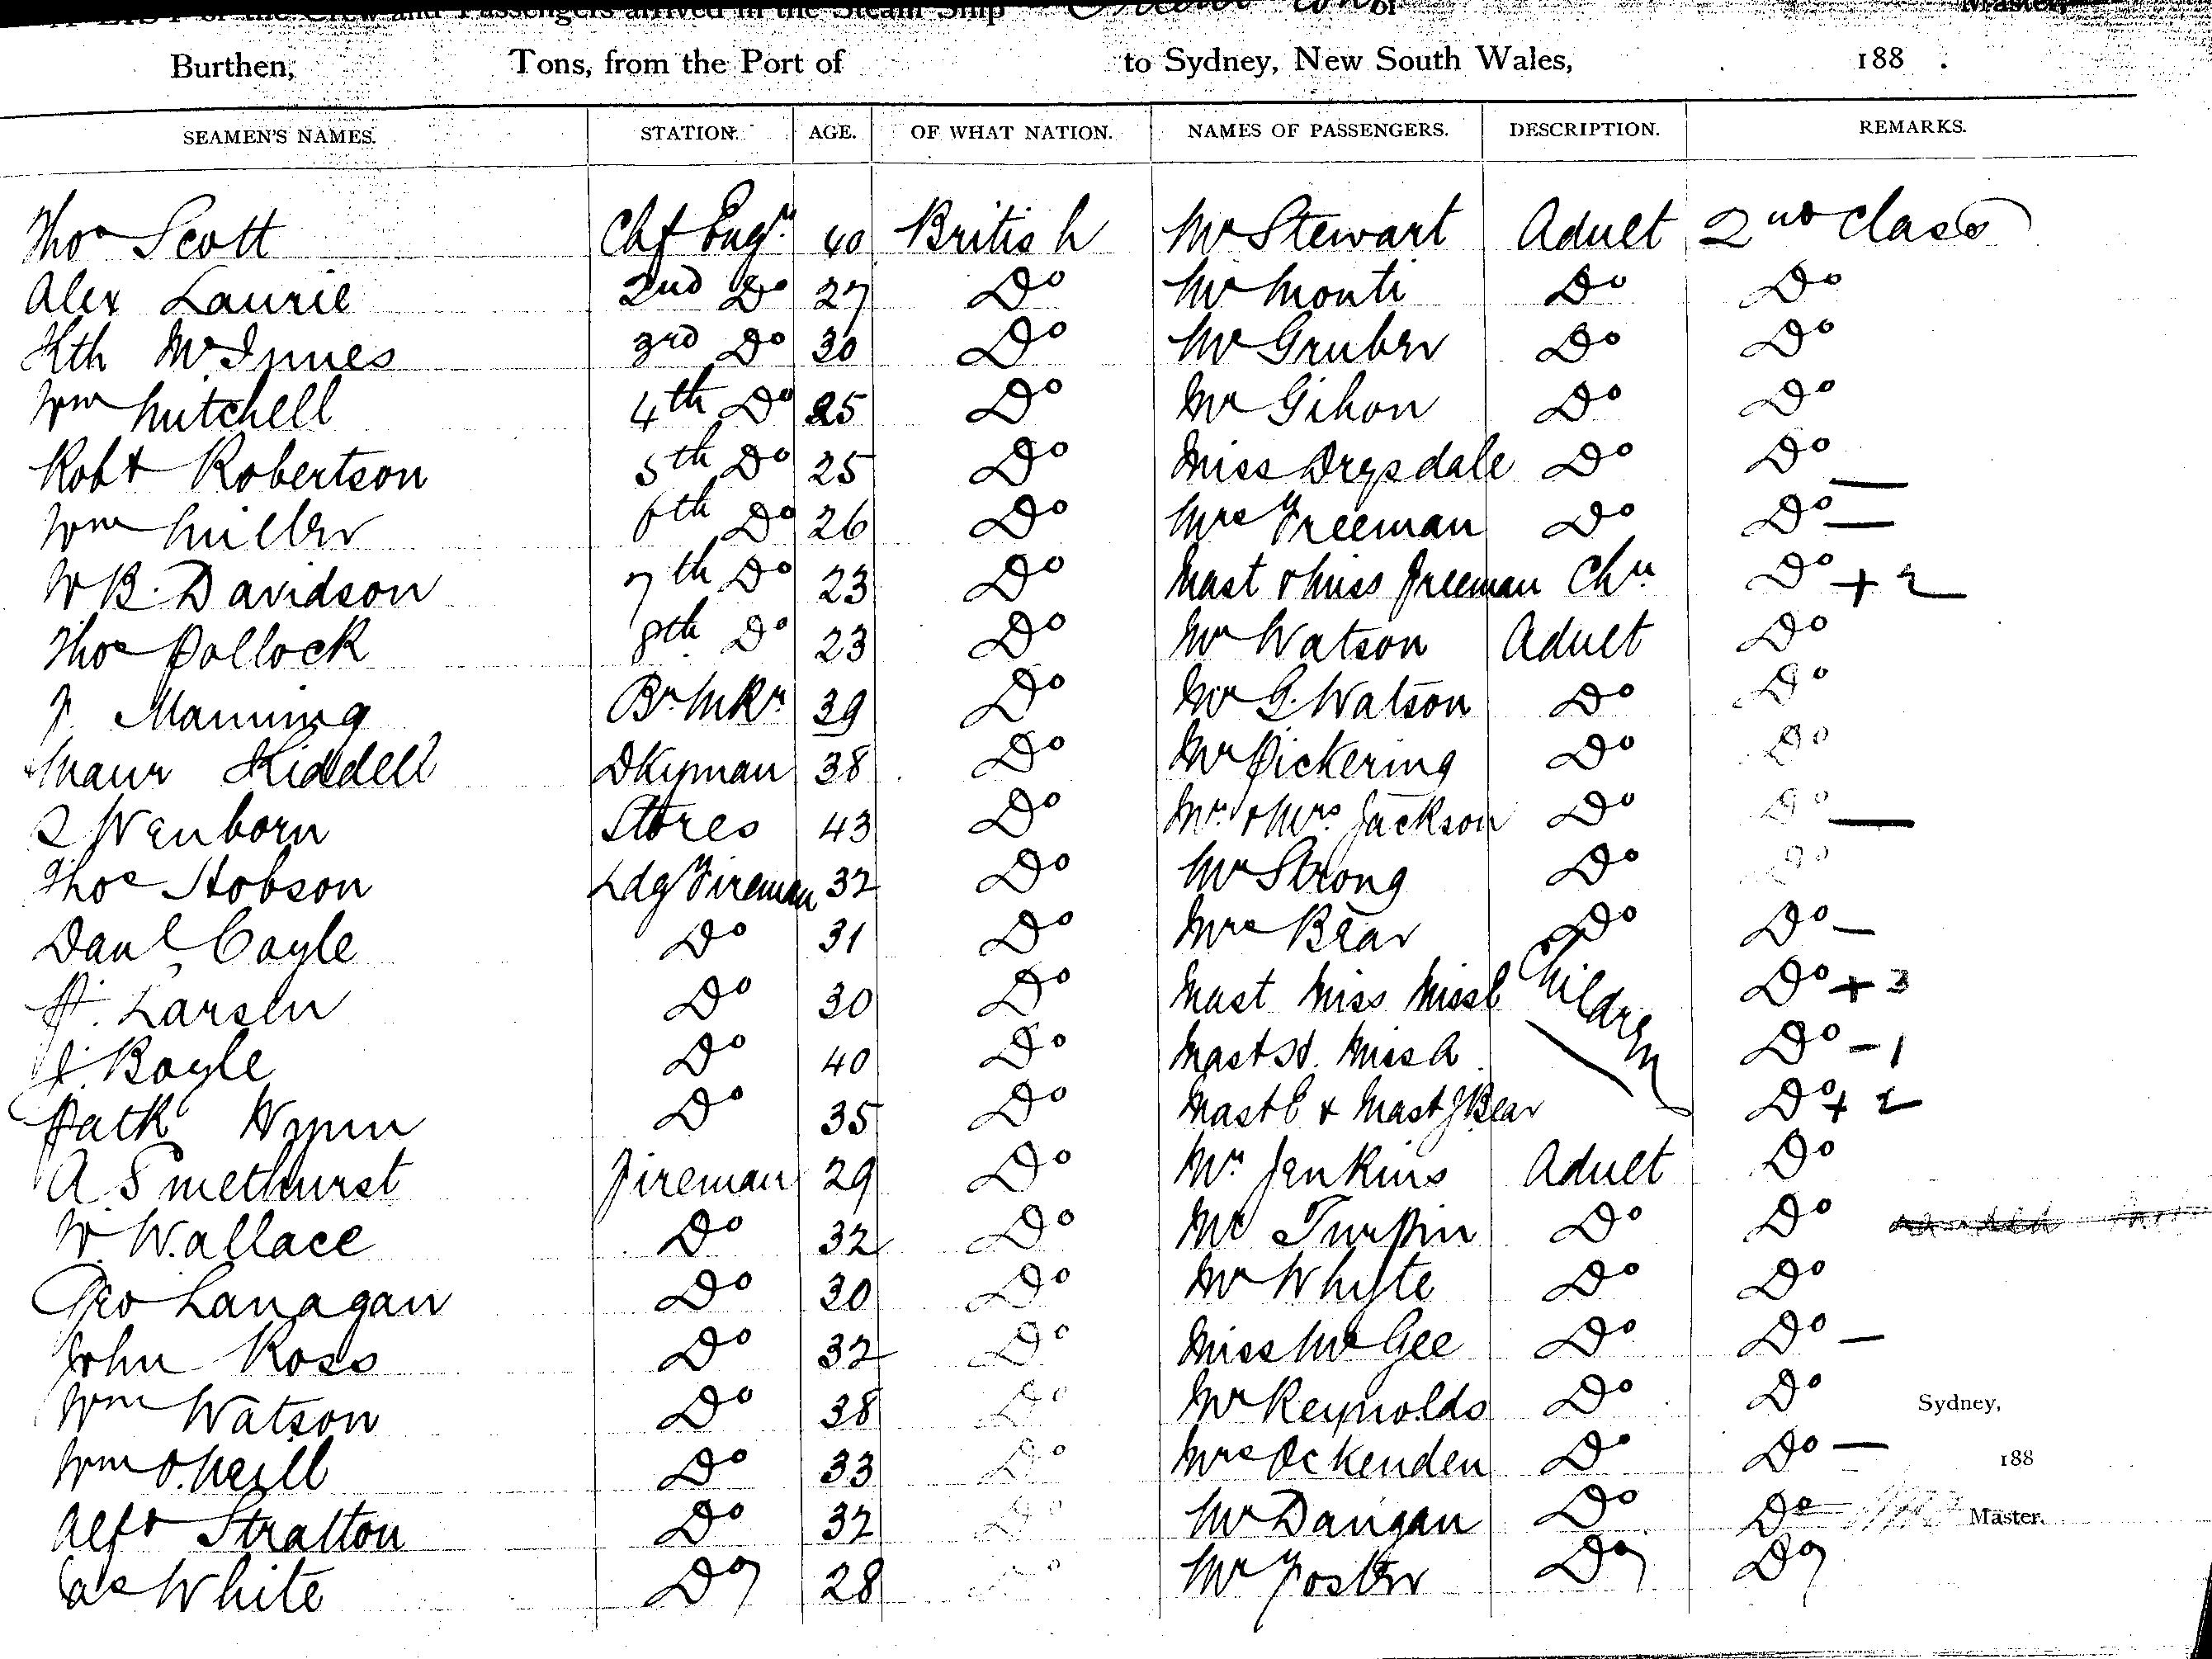 A LIST of the Crew and Passengers arrived in the Steam Ship of Master,
Burthen, Tons, from the Port of to Sydney, New South Wales, 188 .
SEAMEN'S NAMES. STATION. AGE. OF WHAT NATION. NAMES OF PASSENGERS. DESCRIPTION. REMARKS.
Thos Scott Chf Engr. 40 British Mr Stewart Adult 2nd Class
Alex Laurie 2nd Do 27 Do Mr Monti Do Do
Hth McInnes 3rd Do 30 Do Mr Gruber Do Do
Wm Mitchell 4th Do 25 Do Mr Gihon Do Do
Robt Robertson 5th Do 25 Do Miss Drysdale Do Do
Wm Miller 6th Do 26 Do Mrs Freeman Do Do —
W B. Davidson 7th Do 23 Do Mast & Miss Freeman Chn Do + 2
Thos Pollock 8th Do 23 Do Mr Watson Adult Do
J. Manning Br MKr 39 Do Mr G. Watson Do Do
Maur Kiddell DKyman 38 Do Mr Pickering Do Do
S Wenborn Stores 43 Do Mr. & Mrs. Jackson Do Do —
Thos Hobson Ldg Fireman 32 Do Mr Strong Do Do
Danl Coyle Do 31 Do Mrs Bear Do Do —
H. Larsen Do 30 Do Mast Miss Miss E Children Do + 3
J. Boyle Do 40 Do Mast H. Miss A Do - 1
Patk Wynn Do 35 Do Mast E & Mast J Bear Do + 2
A Smethurst Fireman 29 Do Mr. Jenkins Adult Do
W. Wallace Do 32 Do Mr Turpin Do Do
Geo Lanagan Do 30 Do Mr Whyte Do Do
John Ross Do 32 Do Miss McGee Do Do —
Wm Watson Do 38 Do Mr Reynolds Do Do Sydney,
Wm O.Neill Do 33 Do Mrs Ockenden Do Do — 188
Alfd Stratton Do 32 Do Mr Dangan Do Do Master.
Jas White Do 28 Do Mr Foster Do Do